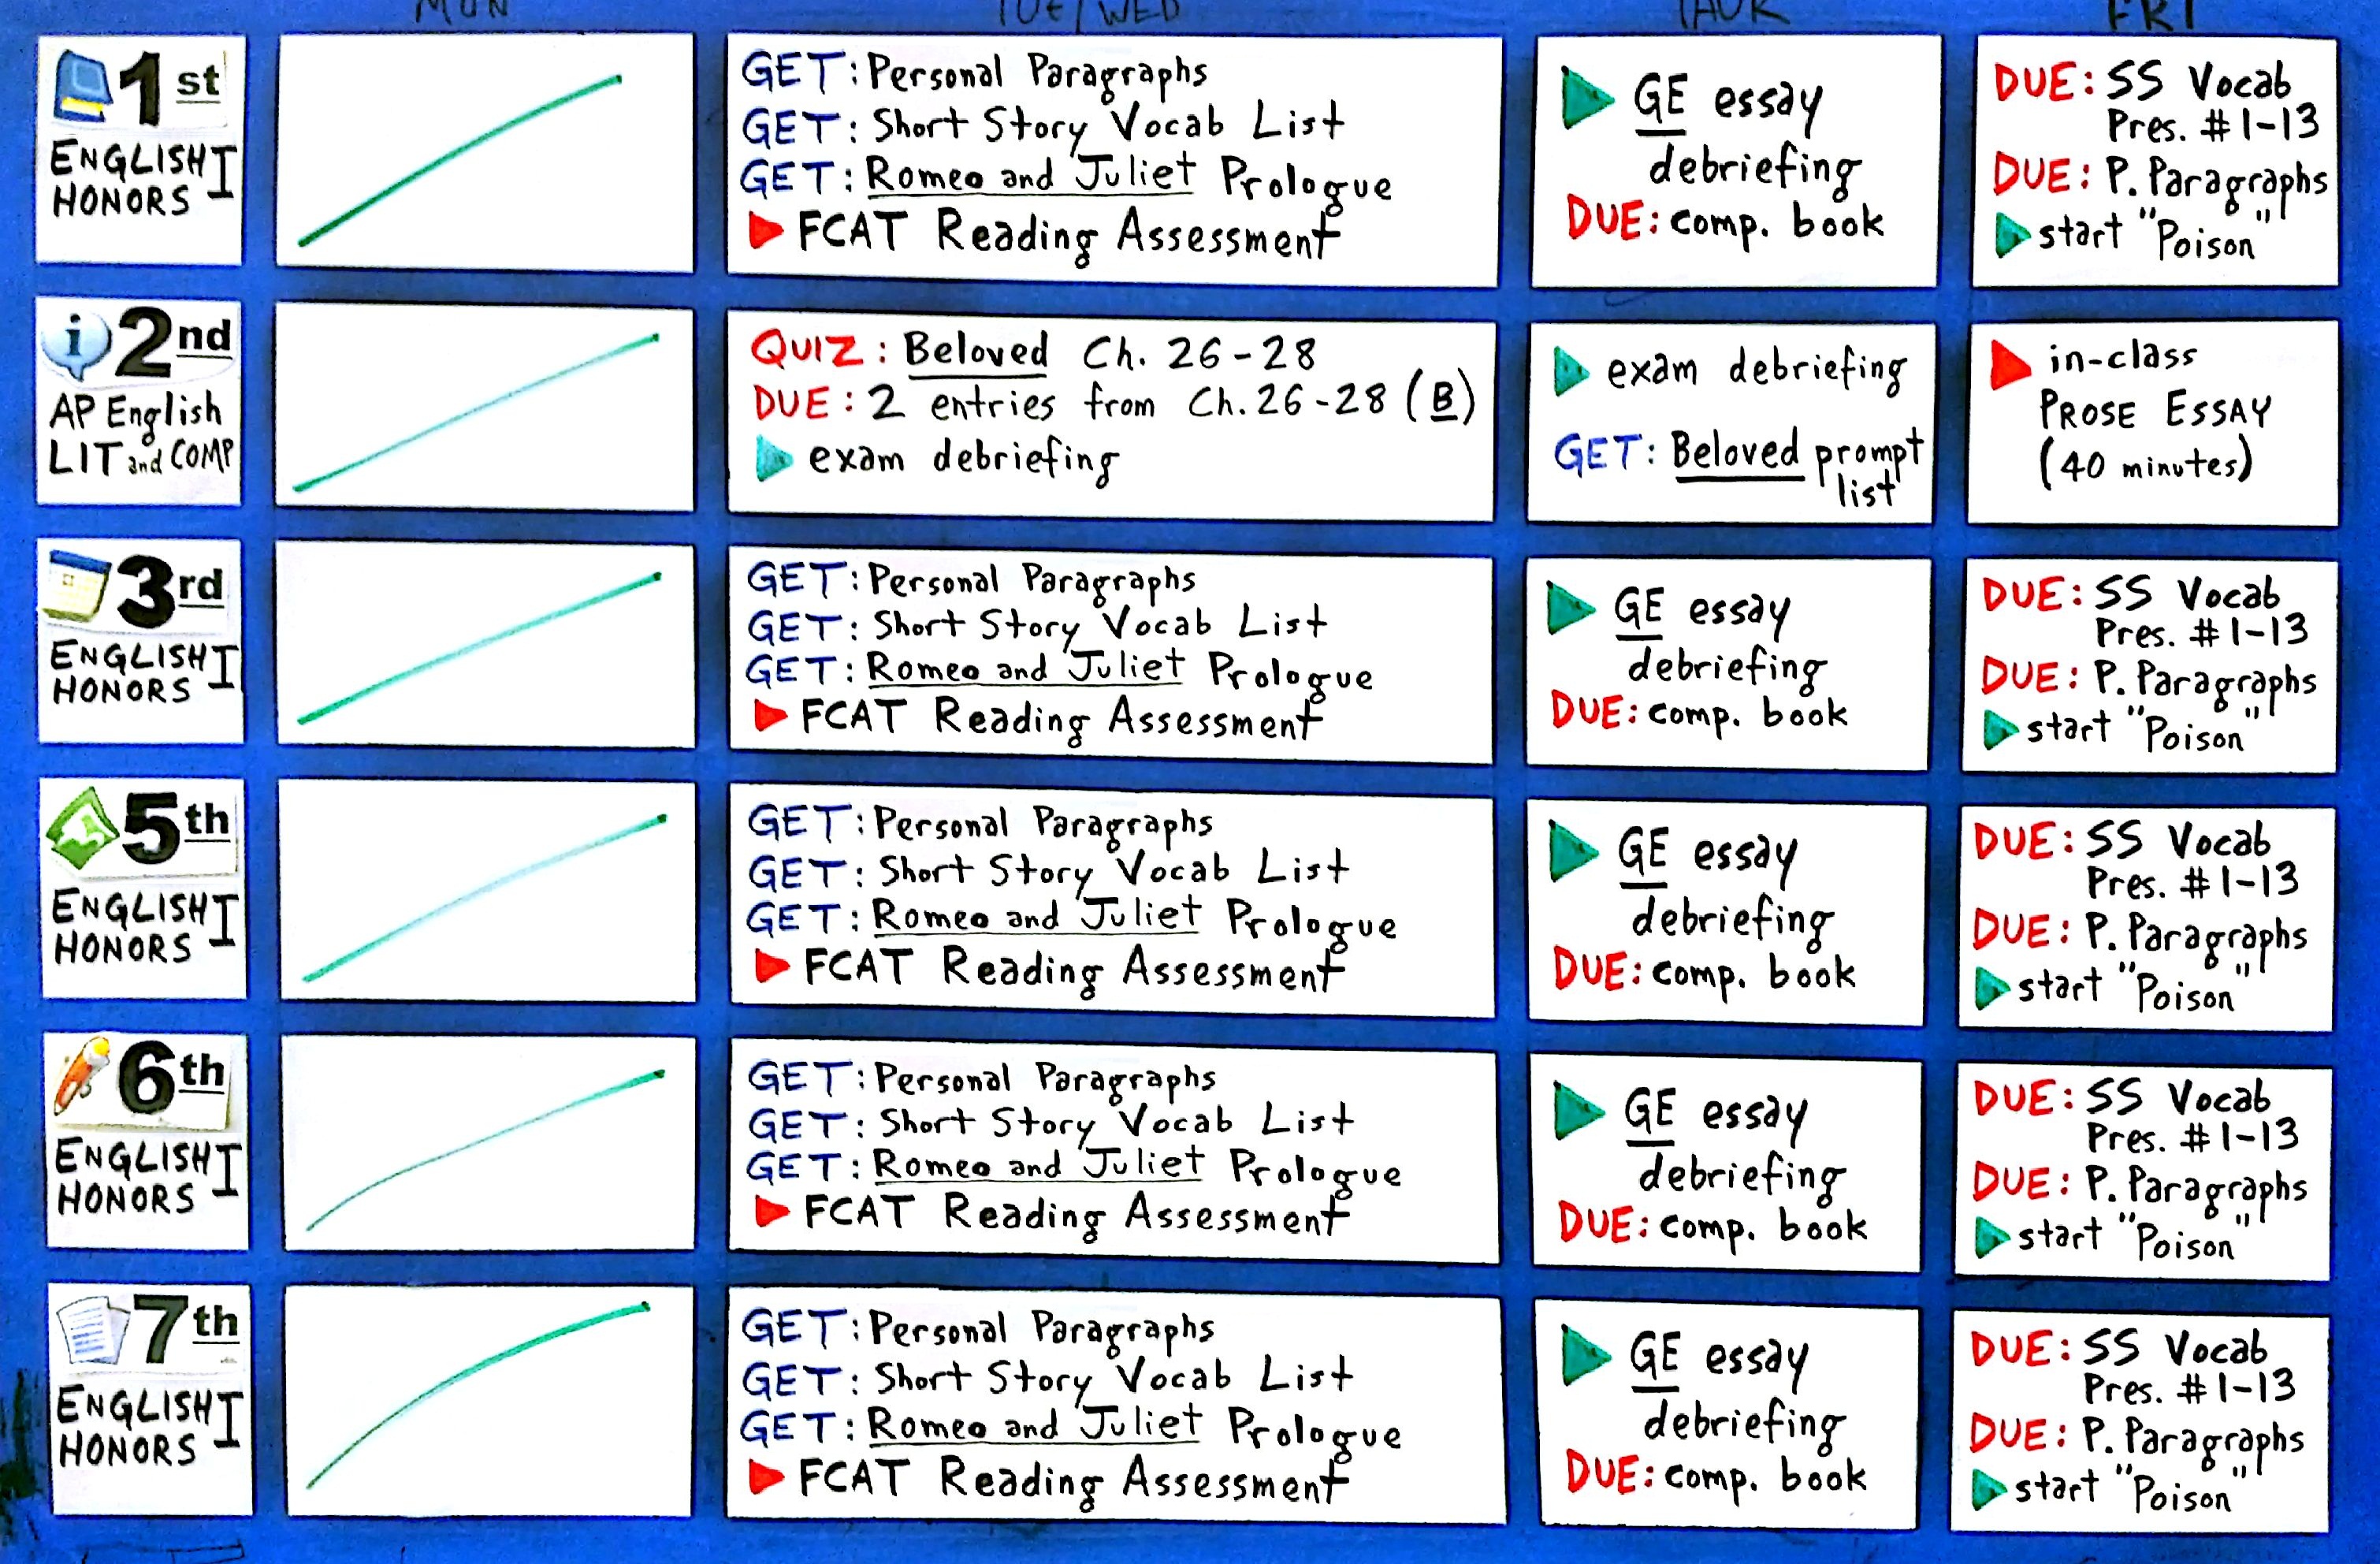 MON TUE/WED THUR FRI
1st
ENGLISH I
HONORS
GET: Personal Paragraphs
GET: Short Story Vocab List
GET: Romeo and Juliet Prologue
FCAT Reading Assessment
GE essay
debriefing
DUE: comp. book
DUE: SS Vocab
Pres. #1-13
DUE: P. Paragraphs
start "Poison"
i 2nd
AP English
LIT and COMP
QUIZ: Beloved Ch. 26-28
DUE: 2 entries from Ch. 26-28 (B)
exam debriefing
exam debriefing
GET: Beloved prompt
list
in-class
PROSE ESSAY
(40 minutes)
3rd
ENGLISH I
HONORS
GET: Personal Paragraphs
GET: Short Story Vocab List
GET: Romeo and Juliet Prologue
FCAT Reading Assessment
GE essay
debriefing
DUE: comp. book
DUE: SS Vocab
Pres. #1-13
DUE: P. Paragraphs
start "Poison"
5th
ENGLISH I
HONORS
GET: Personal Paragraphs
GET: Short Story Vocab List
GET: Romeo and Juliet Prologue
FCAT Reading Assessment
GE essay
debriefing
DUE: comp. book
DUE: SS Vocab
Pres. #1-13
DUE: P. Paragraphs
start "Poison"
6th
ENGLISH I
HONORS
GET: Personal Paragraphs
GET: Short Story Vocab List
GET: Romeo and Juliet Prologue
FCAT Reading Assessment
GE essay
debriefing
DUE: comp. book
DUE: SS Vocab
Pres. #1-13
DUE: P. Paragraphs
start "Poison"
7th
ENGLISH I
HONORS
GET: Personal Paragraphs
GET: Short Story Vocab List
GET: Romeo and Juliet Prologue
FCAT Reading Assessment
GE essay
debriefing
DUE: comp. book
DUE: SS Vocab
Pres. #1-13
DUE: P. Paragraphs
start "Poison"